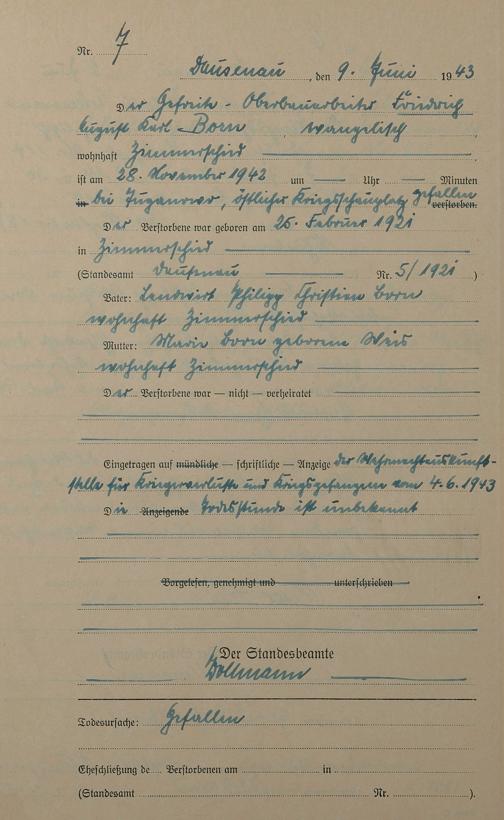 Nr. 7
Dausenau, den 9. Juni 1943
Der Gefreite - Oberbauarbeiter Friedrich
August Karl Born, evangelisch
wohnhaft Zimmerschied
ist am 28. November 1942 um — Uhr — Minuten
in bei Juganowo, östlicher Kriegsschauplatz gefallen verstorben.
Der Verstorbene war geboren am 25. Februar 1921
in Zimmerschied
(Standesamt Dausenau Nr. 5/1921)
Vater: Landwirt Philipp Christian Born
wohnhaft Zimmerschied
Mutter: Marie Born geborene Weis
wohnhaft Zimmerschied
Der Verstorbene war — nicht — verheiratet
Eingetragen auf mündliche — schriftliche — Anzeige der Wehrmachtauskunft-
stelle für Kriegerverluste und Kriegsgefangene vom 4.6.1943
Die Anzeigende Todesstunde ist unbekannt
Vorgelesen, genehmigt und unterschrieben
Der Standesbeamte
Dollmann
Todesursache: Gefallen
Eheschließung de Verstorbenen am in
(Standesamt Nr. ).